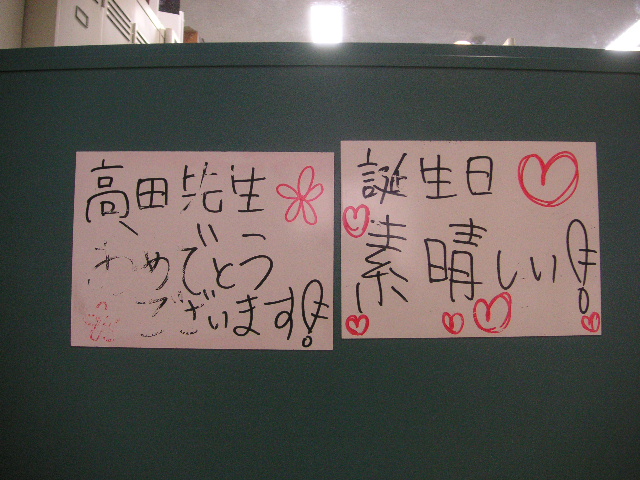 高田先生、
おめでとう
ございます!
誕生日
素晴しい!